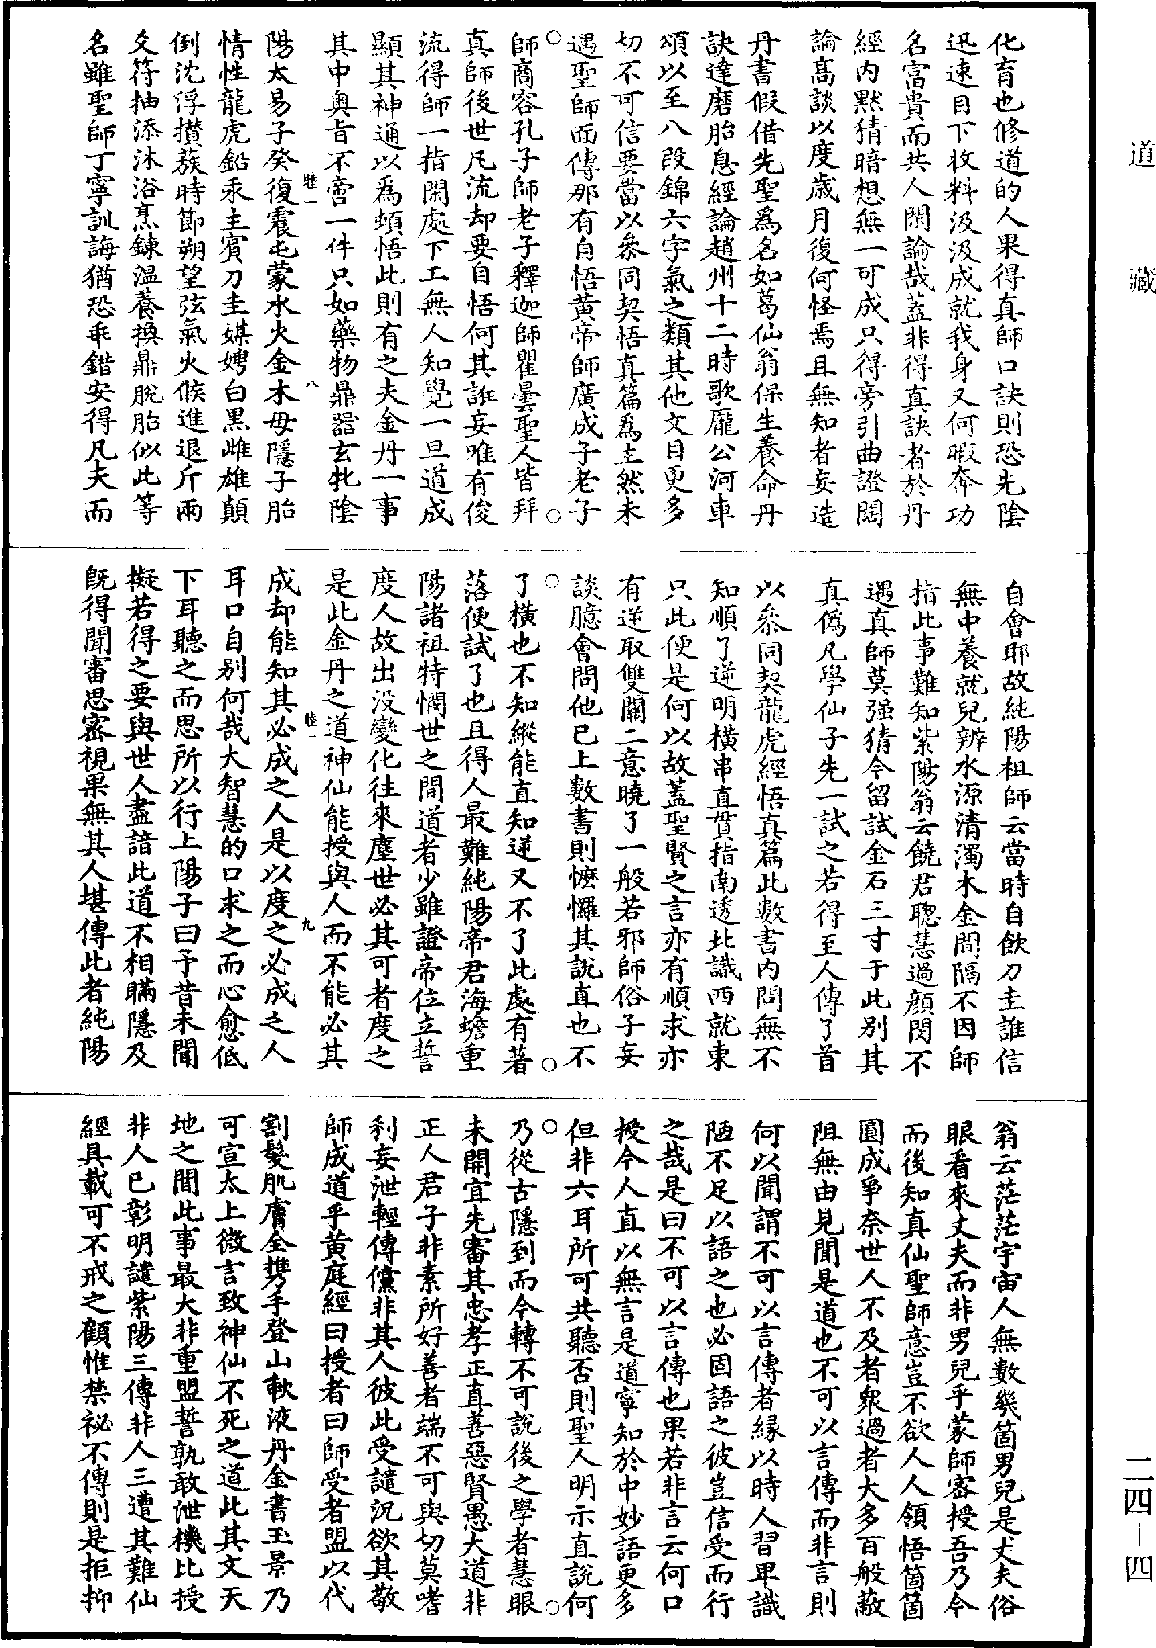 道藏
二四-四
化育也修道的人果得真師口訣則恐光陰
迅速目下收料汲汲成就我身又何暇奔功
名富貴而共人閑論哉蓋非得真訣者於丹
經內默猜暗想無一可成只得旁引曲證闊
論高談以度歲月復何怪焉且無知者妄造
丹書假借先聖為名如葛仙翁保生養命丹
訣達磨胎息經論趙州十二時歌龐公河車
頌以至八段錦六字氣之類其他文目更多
切不可信要當以參同契悟真篇為主然未
遇聖師面傳那有自悟黃帝師廣成子老子
師商容孔子師老子釋迦師瞿曇聖人皆拜
真師後世凡流却要自悟何其誑妄唯有俊
流得師一指閑處下工無人知覺一旦道成
顯其神通以為頓悟此則有之夫金丹一事
其中奧旨不啻一件只如藥物鼎器玄牝陰
陽太易子癸復震屯蒙水火金木母隱子胎
情性龍虎鉛汞主賓刀圭媒娉白黑雌雄顛
倒沈浮攢蔟時節朔望弦氣火候進退斤兩
爻符抽添沐浴烹鍊溫養換鼎脫胎似此等
名雖聖師丁寧訓誨猶恐乖錯安得凡夫而
八
自會耶故純陽祖師云當時自飲刀圭誰信
無中養就兒辨水源清濁木金間隔不因師
指此事難知紫陽翁云饒君聰慧過顏閔不
遇真師莫強猜今留試金石三寸于此別其
真偽凡學仙子先一試之若得至人傳了首
以參同契龍虎經悟真篇此數書內問無不
知順了逆明橫串直貫指南透北識西就東
只此便是何以故蓋聖賢之言亦有順求亦
有逆取雙關二意曉了一般若邪師俗子妄
談臆會問他已上數書則懡㦬其說直也不
了橫也不知縱能直知逆又不了此處有著
落便試了也且得人最難純陽帝君海蟾重
陽諸祖特憫世之間道者少雖證帝位立誓
度人故出沒變化往來塵世必其可者度之
是此金丹之道神仙能授與人而不能必其
成却能知其必成之人是以度之必成之人
耳口自別何哉大智慧的口求之而心愈低
下耳聽之而思所以行上陽子曰予昔未聞
擬若得之要與世人盡諳此道不相瞞隱及
既得聞審思密視果無其人堪傳此者純陽
九
翁云茫茫宇宙人無數幾箇男兒是丈夫俗
眼看來丈夫而非男兒乎蒙師密授吾乃今
而後知真仙聖師意豈不欲人人領悟箇箇
圓成爭奈世人不及者衆過者大多百般蔽
阻無由見聞是道也不可以言傳而非言則
何以聞謂不可以言傳者緣以時人習卑識
陋不足以語之也必固語之彼豈信受而行
之哉是曰不可以言傳也果若非言云何口
授今人直以無言是道寧知於中妙語更多
但非六耳所可共聽否則聖人明示直說何
乃從古隱到而今轉不可說後之學者慧眼
未開宜先審其忠孝正直善惡賢愚大道非
正人君子非素所好善者端不可與切莫嗜
利妄泄輕傳儻非其人彼此受譴況欲其敬
師成道乎黃庭經曰授者曰師受者盟以代
割髮肌膚全携手登山歃液丹金書玉景乃
可宣太上微言致神仙不死之道此其文天
地之間此事最大非重盟誓孰敢泄機比授
非人已彰明譴紫陽三傳非人三遭其難仙
經具載可不戒之顧惟禁祕不傳則是拒抑